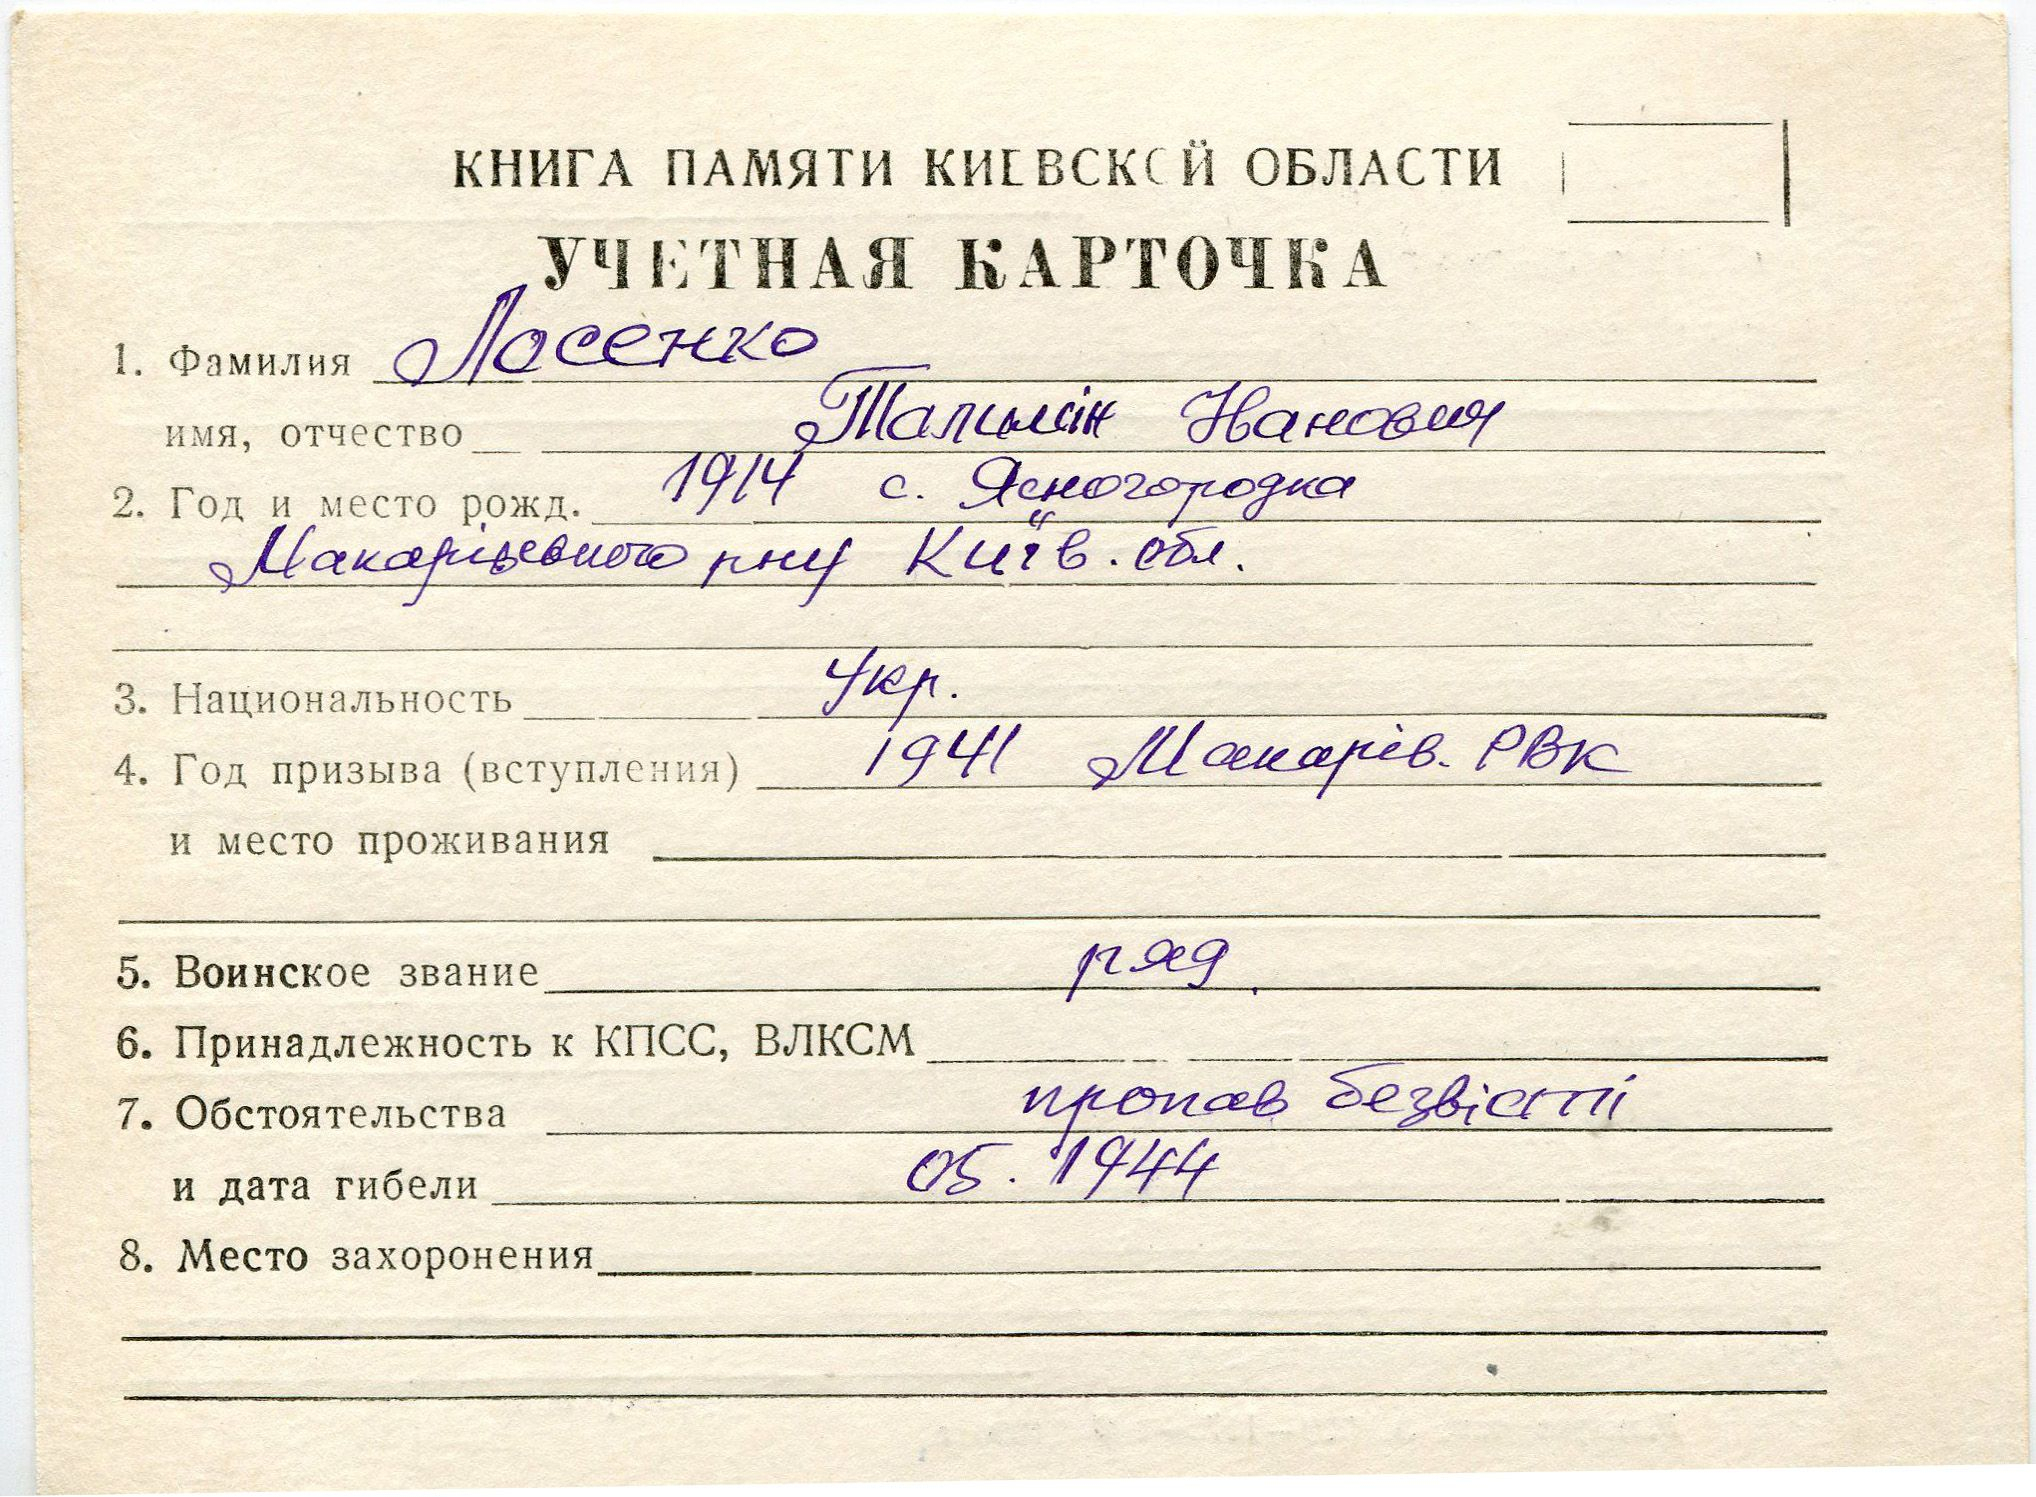 КНИГА ПАМЯТИ КИЕВСКОЙ ОБЛАСТИ
УЧЕТНАЯ КАРТОЧКА
1. Фамилия Лосенко
имя, отчество Іванович
2. Год и место рожд. 1914 с. Ясногородка
Макарівського р-ну Київ. обл.
3. Национальность Укр.
4. Год призыва (вступления) 1941 Макарів. РВК
и место проживания
5. Воинское звание ряд.
6. Принадлежность к КПСС, ВЛКСМ
7. Обстоятельства пропав безвісті
и дата гибели 05. 1944
8. Место захоронения